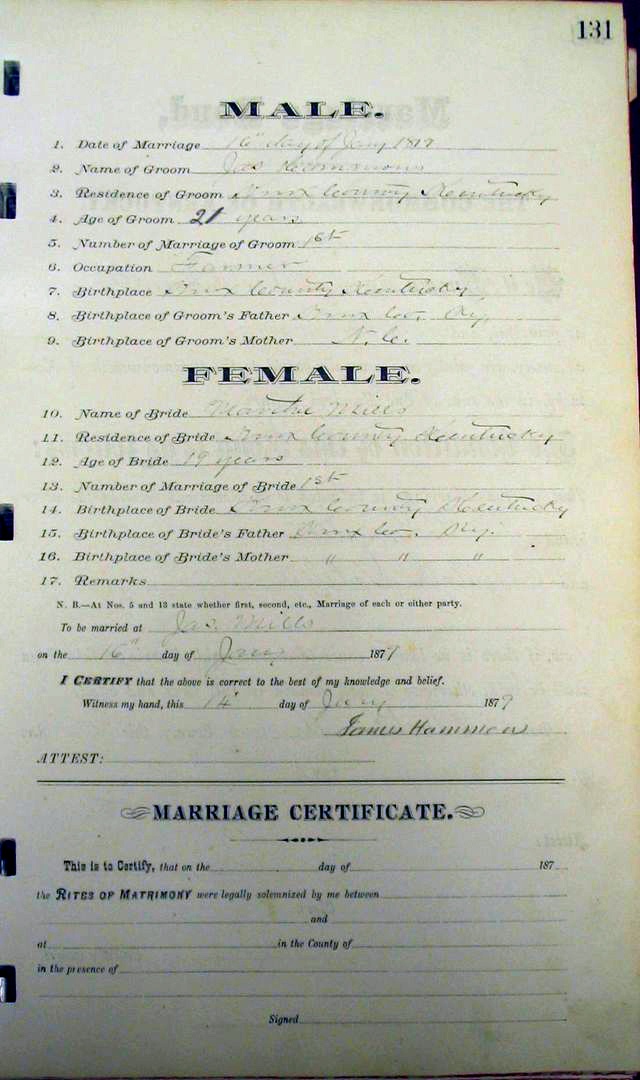 131
MALE.
1. Date of Marriage 16" day of Jany 1879
2. Name of Groom Jas Hammons
3. Residence of Groom Knox County Kentucky
4. Age of Groom 21 years
5. Number of Marriage of Groom 1st
6. Occupation Farmer
7. Birthplace Knox County Kentucky
8. Birthplace of Groom's Father Knox Co. Ky.
9. Birthplace of Groom's Mother N. C.
FEMALE.
10. Name of Bride Martha Mills
11. Residence of Bride Knox County Kentucky
12. Age of Bride 19 years
13. Number of Marriage of Bride 1st
14. Birthplace of Bride Knox County Kentucky
15. Birthplace of Bride's Father Knox Co. Ky.
16. Birthplace of Bride's Mother " " "
17. Remarks
N. B.—At Nos. 5 and 13 state whether first, second, etc., Marriage of each or either party.
To be married at Jas. Mills
on the 16" day of Jany 1879
I CERTIFY that the above is correct to the best of my knowledge and belief.
Witness my hand, this 14" day of Jany 1879
James Hammons
ATTEST:
MARRIAGE CERTIFICATE.
This is to Certify, that on the day of 187
the RITES OF MATRIMONY were legally solemnized by me between
and
at in the County of
in the presence of
Signed